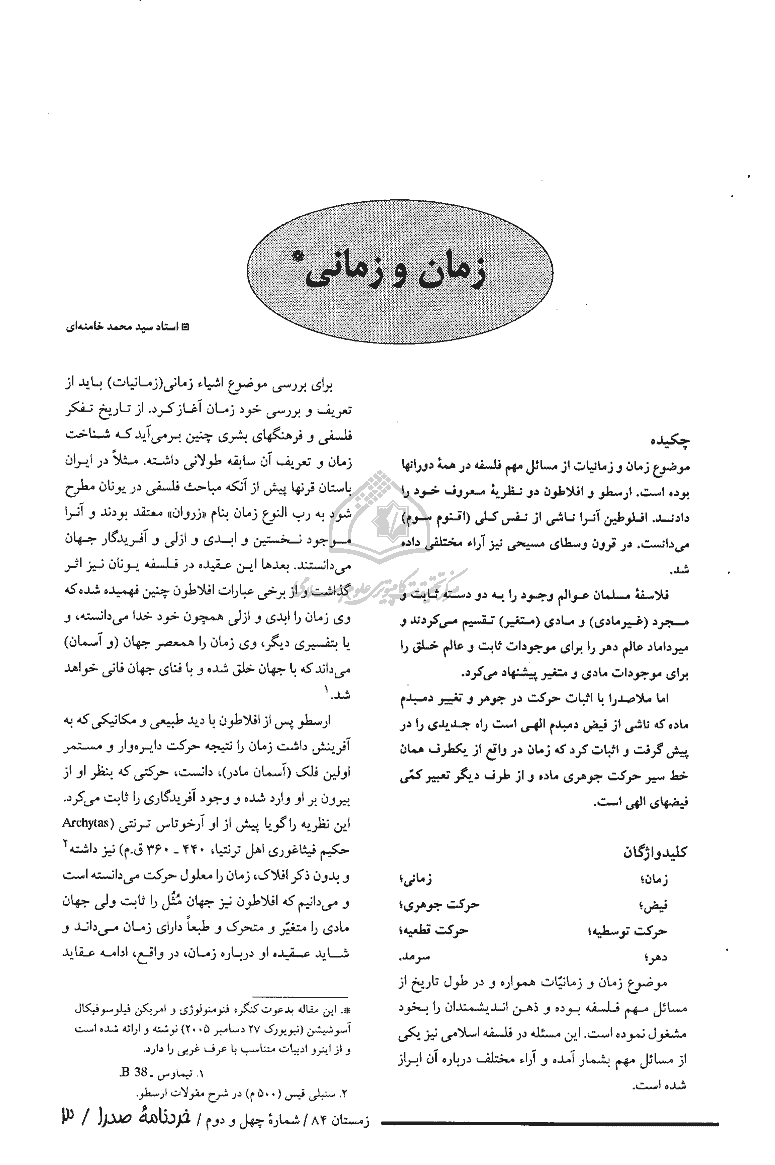 زمان و زمانی*
استاد سید محمد خامنه‌ای
چکیده
موضوع زمان و زمانیات از مسائل مهم فلسفه در همهٔ دورانها
بوده است. ارسطو و افلاطون دو نظریهٔ معروف خود را
دادند. افلوطین آنرا ناشی از نفس کلی (اقنوم سوم)
می‌دانست. در قرون وسطای مسیحی نیز آراء مختلفی داده
شد.
فلاسفهٔ مسلمان عوالم وجود را به دو دسته ثابت و
مجرد (غیرمادی) و مادی (متغیر) تقسیم می‌کردند و
میرداماد عالم دهر را برای موجودات ثابت و عالم خلق را
برای موجودات مادی و متغیر پیشنهاد می‌کرد.
اما ملاصدرا با اثبات حرکت در جوهر و تغییر دمبدم
ماده که ناشی از فیض دمبدم الهی است راه جدیدی را در
پیش گرفت و اثبات کرد که زمان در واقع از یکطرف همان
خط سیر حرکت جوهری ماده و از طرف دیگر تعبیر کمّی
فیضهای الهی است.
کلیدواژگان
زمان؛ زمانی؛
فیض؛ حرکت جوهری؛
حرکت توسطیه؛ حرکت قطعیه؛
دهر؛ سرمد.
موضوع زمان و زمانیّات همواره و در طول تاریخ از
مسائل مهم فلسفه بوده و ذهن اندیشمندان را بخود
مشغول نموده است. این مسئله در فلسفه اسلامی نیز یکی
از مسائل مهم بشمار آمده و آراء مختلف درباره آن ابراز
شده است.
برای بررسی موضوع اشیاء زمانی(زمانیات) باید از
تعریف و بررسی خود زمان آغاز کرد. از تاریخ تفکر
فلسفی و فرهنگهای بشری چنین برمی‌آید که شناخت
زمان و تعریف آن سابقه طولانی داشته. مثلاً در ایران
باستان قرنها پیش از آنکه مباحث فلسفی در یونان مطرح
شود به رب النوع زمان بنام «زروان» معتقد بودند و آنرا
موجود نخستین و ابدی و ازلی و آفریدگار جهان
می‌دانستند. بعدها این عقیده در فلسفه یونان نیز اثر
گذاشت و از برخی عبارات افلاطون چنین فهمیده شده که
وی زمان را ابدی و ازلی همچون خود خدا می‌دانسته، و
یا بتفسیری دیگر، وی زمان را همعصر جهان (و آسمان)
می‌داند که با جهان خلق شده و با فنای جهان فانی خواهد
شد.۱
ارسطو پس از افلاطون با دید طبیعی و مکانیکی که به
آفرینش داشت زمان را نتیجه حرکت دایره‌وار و مستمر
اولین فلک (آسمان مادر)، دانست، حرکتی که بنظر او از
بیرون بر او وارد شده و وجود آفریدگاری را ثابت می‌کرد.
این نظریه را گویا پیش از او آرخوتاس ترنتی (Archytas
حکیم فیثاغوری اهل ترنتیا، ۴۴۰ ـ ۳۶۰ ق.م) نیز داشته۲
و بدون ذکر افلاک، زمان را معلول حرکت می‌دانسته است
و می‌دانیم که افلاطون نیز جهان مُثُل را ثابت ولی جهان
مادی را متغیّر و متحرک و طبعاً دارای زمان می‌داند و
شاید عقیده او درباره زمان، در واقع، ادامه عقاید
*. این مقاله بدعوت کنگره فنومنولوژی و امریکن فیلوسوفیکال
آسوشیشن (نیویورک ۲۷ دسامبر ۲۰۰۵) نوشته و ارائه شده است
و از اینرو ادبیات متناسب با عرف غربی را دارد.
۱. تیماوس ـ 38 B.
۲. سنبلی قیس (۵۰۰ م) در شرح مقولات ارسطو.
زمستان ۸۴ / شمارهٔ چهل و دوم / خردنامهٔ صدرا / ۳